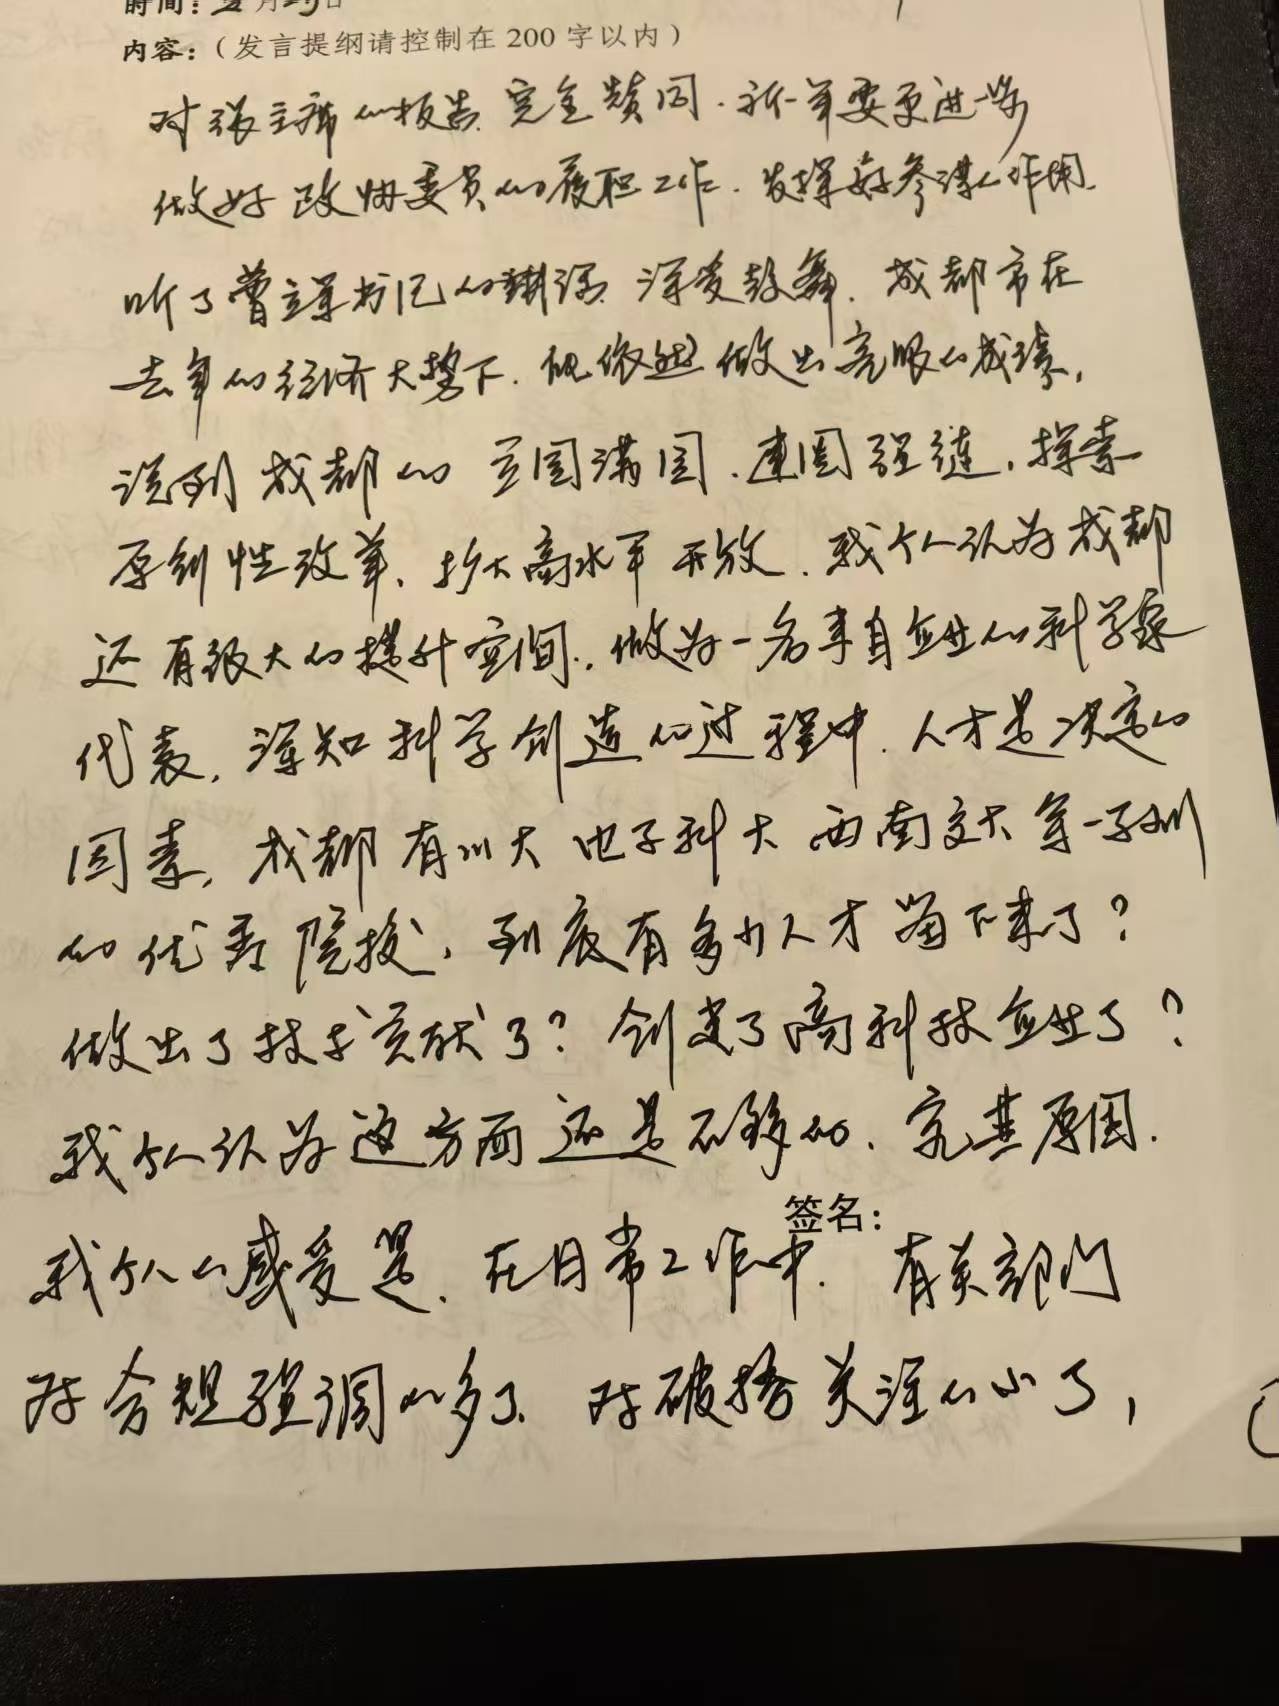 时间：2月23日
内容：（发言提纲请控制在 200 字以内）
对张主席的报告完全赞同．新一年要更进一步
做好政协委员的履职工作．发挥好参谋的作用．
听了曹立军书记的讲话深受鼓舞．成都市在
去年的经济大势下．依然做出亮眼的成绩，
说到成都的立园满园、建圈强链，探索
原创性改革、扩大高水平开放．我个人认为成都
还有很大的提升空间．，做为一名来自企业的科学家
代表，深知科学创造的过程中．人才是决定的
因素，成都有川大 电子科大 西南交大等一系列
的优秀院校，到底有多少人才留下来了？
做出了技术贡献了？创建了高科技企业了？
我个人认为这方面还是不够的．究其原因．
签名：
我个人的感受是．在日常工作中．有关部门
对合规强调的多了．对破格关注的少了，